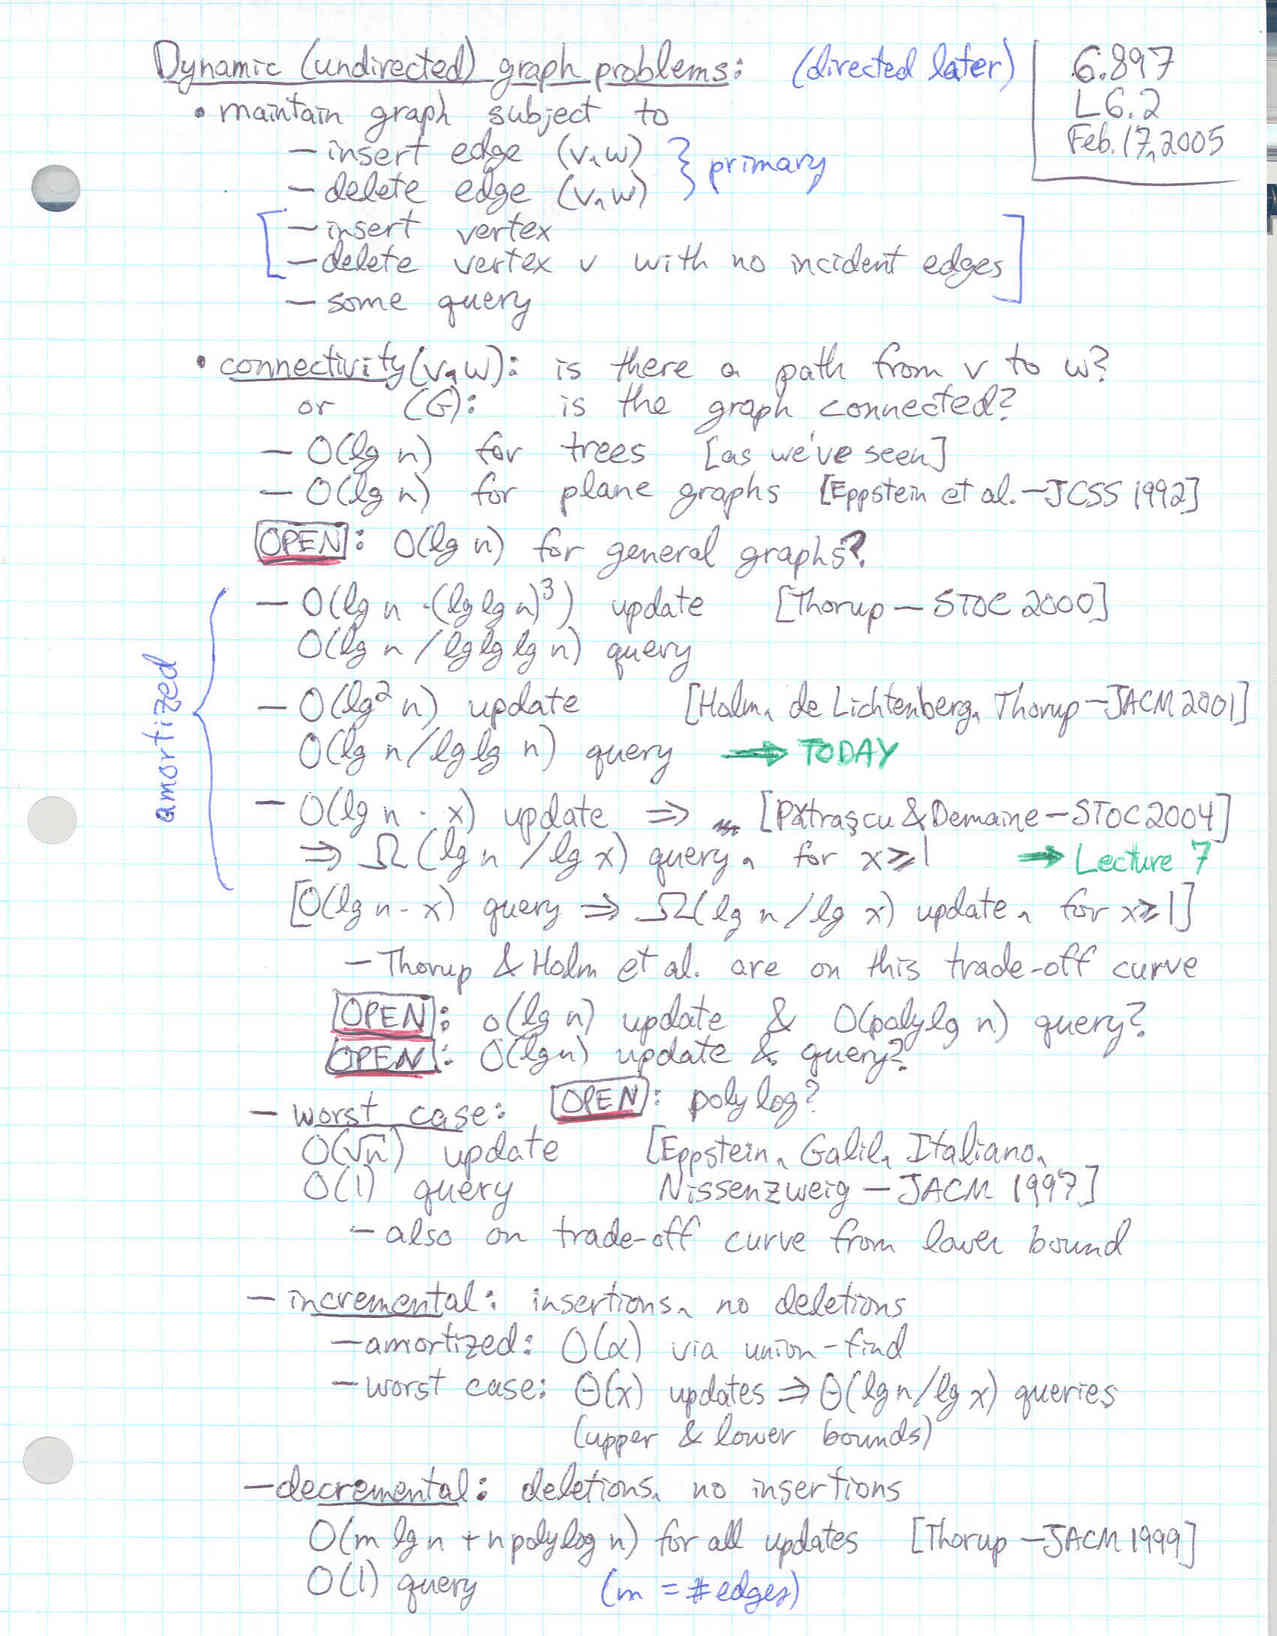 Dynamic (undirected) graph problems: (directed later)
6.897
L6.2
Feb. 17, 2005
• maintain graph subject to
— insert edge (v,w)
— delete edge (v,w) } primary
[— insert vertex
— delete vertex v with no incident edges]
— some query
• connectivity(v,w): is there a path from v to w?
or (G): is the graph connected?
— O(lg n) for trees [as we've seen]
— O(lg n) for plane graphs [Eppstein et al.—JCSS 1992]
OPEN: O(lg n) for general graphs?
amortized
— O(lg n ·(lg lg n)³) update [Thorup — STOC 2000]
O(lg n / lg lg lg n) query
— O(lg² n) update [Holm, de Lichtenberg, Thorup—JACM 2001]
O(lg n / lg lg n) query → TODAY
— O(lg n · x) update ⇒ [Pătraşcu & Demaine—STOC 2004]
⇒ Ω(lg n / lg x) query, for x ≥ 1 → Lecture 7
[O(lg n · x) query ⇒ Ω(lg n / lg x) update, for x ≥ 1]
— Thorup & Holm et al. are on this trade-off curve
OPEN: o(lg n) update & O(polylg n) query?
OPEN: O(lg n) update & query?
— worst case: OPEN: polylog?
O(√n) update [Eppstein, Galil, Italiano,
O(1) query Nissenzweig — JACM 1997]
— also on trade-off curve from lower bound
— incremental: insertions, no deletions
— amortized: O(α) via union-find
— worst case: Θ(x) updates ⇒ Θ(lg n / lg x) queries
(upper & lower bounds)
— decremental: deletions, no insertions
O(m lg n + n polylog n) for all updates [Thorup—JACM 1999]
O(1) query (m = # edges)